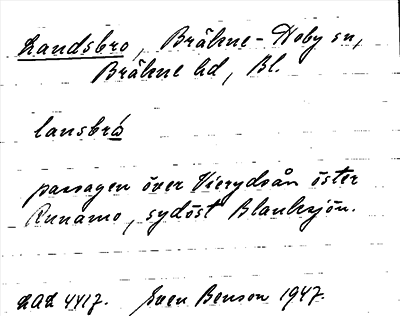 Landsbro, Bräkne-Hoby sn,
Bräkne hd, Bl.
lansbro
passagen över Vierydsån öster
Runamo, sydöst Blanksjön.
LAL 4417. Sven Benson 1947.